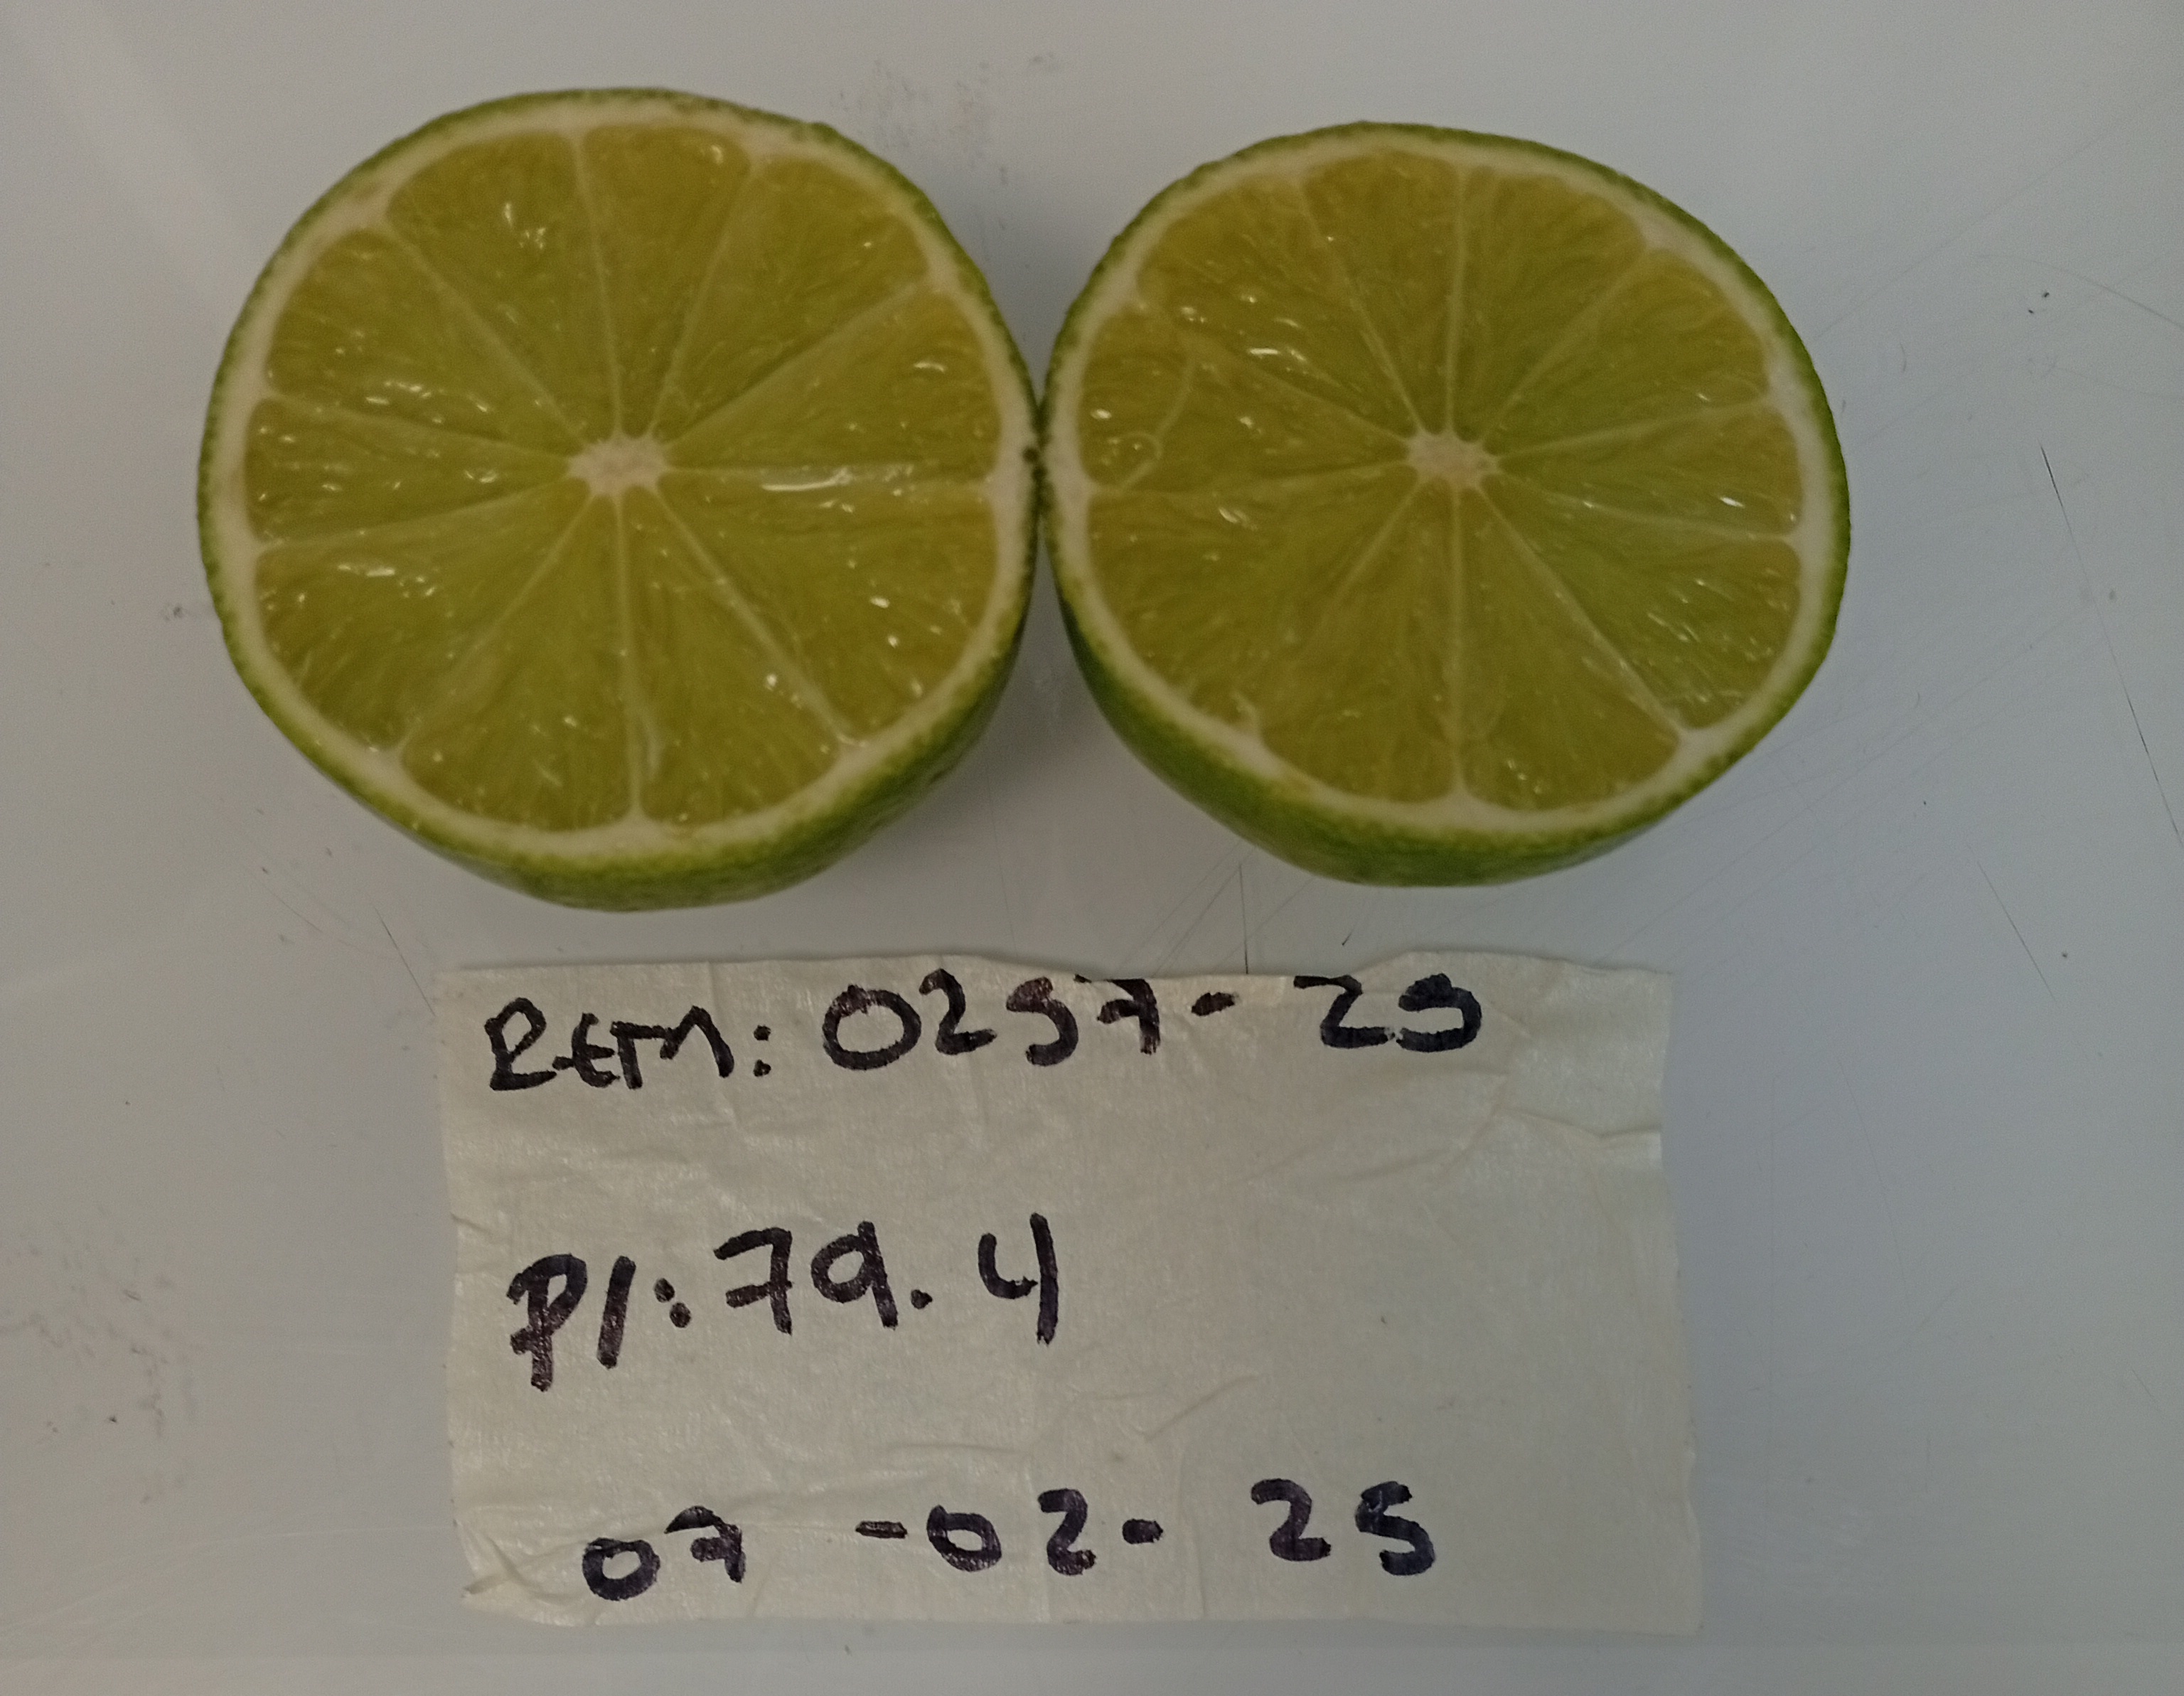 REM: 0257-25
P/: 79.4
07-02-25